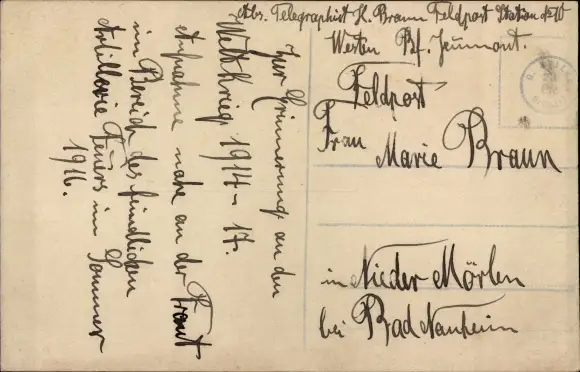 Abs. Telegraphist H. Braun Feldpost Station
Westen Bf. Jeumont.
Feldpost
Frau
Marie Braun
in Nieder Mörlen
bei Bad Nauheim
Zur Erinnerung an den
Weltkrieg 1914-17.
Aufnahme nahe an der Front
im Bereich des feindlichen
Artillerie Feuers im Sommer
1916.